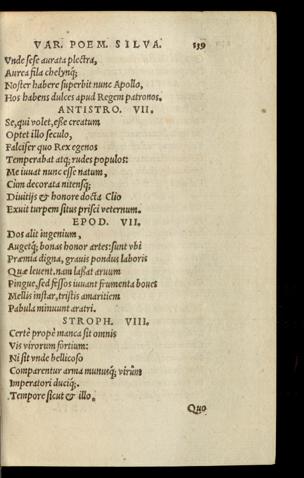 VAR. POEM. SILVA. 139
Vnde sese aurata plectra,
Aurea fila chelynq;
Noster habere superbit nunc Apollo,
Hos habens dulces apud Regem patronos.
ANTISTRO. VII.
Se, qui volet, esse creatum
Optet illo seculo,
Falcifer quo Rex egenos
Temperabat atq; rudes populos:
Me iuuat nunc esse natum,
Cùm decorata nitensq;
Diuitijs & honore docta Clio
Exuit turpem situs prisci veternum.
EPOD. VII.
Dos alit ingenium,
Augetq; bonas honor artes: sunt vbi
Præmia digna, grauis pondus laboris
Quæ leuent. nam laßat aruum
Pingue, sed fessos iuuant frumenta boues
Mellis instar, tristis amaritiem
Pabula minuunt aratri.
STROPH. VIII.
Certè propè manca sit omnis
Vis virorum fortium:
Ni sit vnde bellicoso
Comparentur arma munusq; virûm
Imperatori duciq;.
Tempore sicut & illo,
Quo